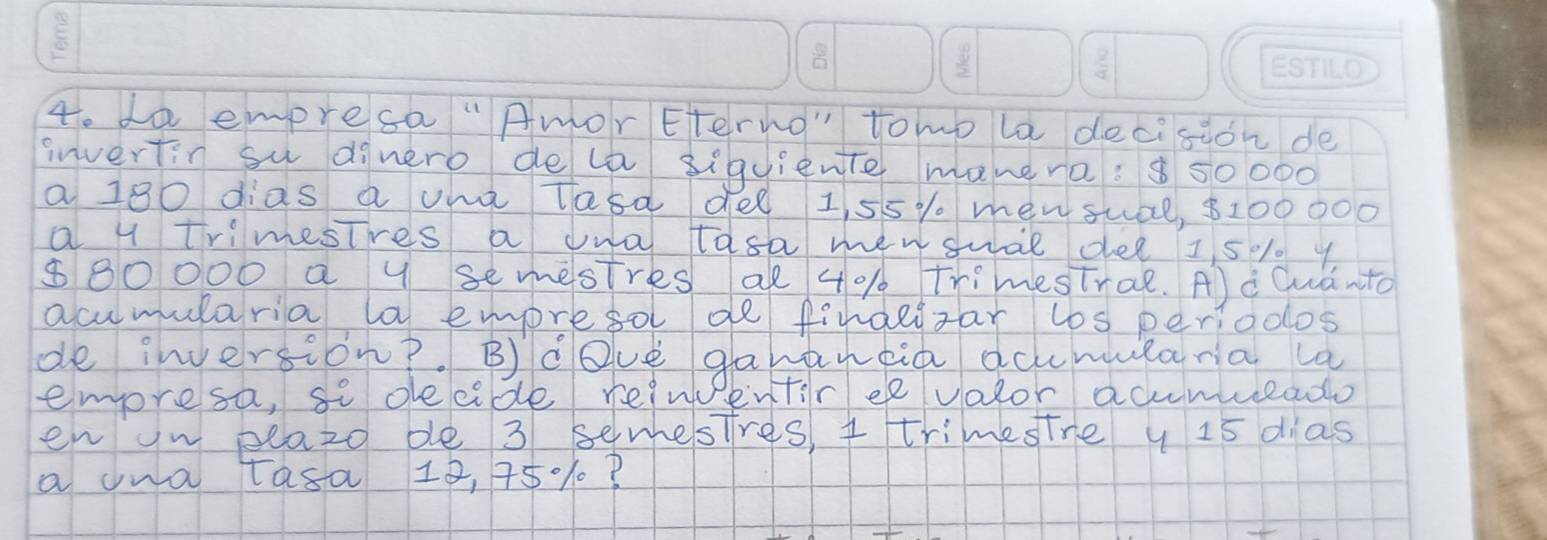 Tema
Dia
Mes
Año
ESTILO
4. La empresa "Amor Eterno" tomo la decisión de
invertir su dinero de la siguiente manera: $ 50 000
a 180 dias a una Tasa del 1,55% mensual, $100 000
a 4 trimestres a una tasa mensual del 1,5% y
$ 80 000 a 4 semestres al 4% Trimestral. A) ¿Cuánto
acumularia la empresa al finalizar los periodos
de inversión?. B) ¿Qué ganancia acumularia la
empresa, si decide reinventir el valor acumulado
en un plazo de 3 semestres, 1 trimestre y 15 dias
a una tasa 12,75%?